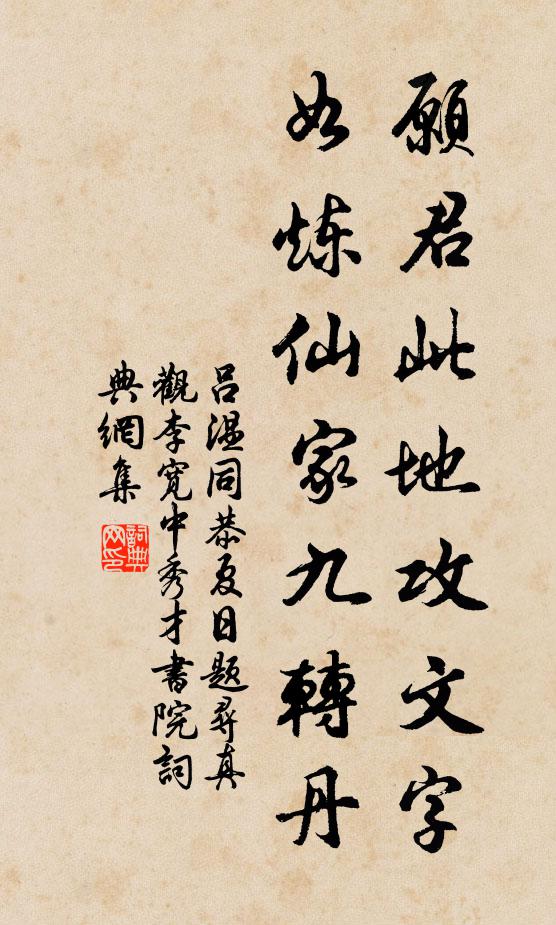 願君此地攻文字
如炼仙家九轉丹
呂温同恭夏日题尋真
觀李寬中秀才書院詞
典網集
詞典
网印